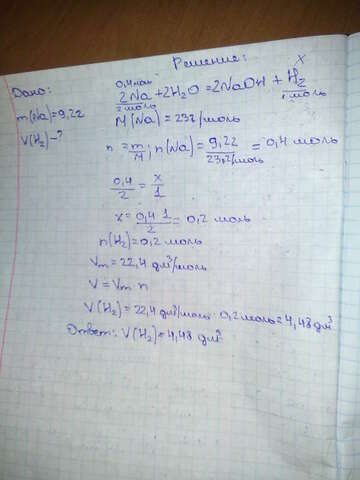 Решение:
Дано:
0,4 моль x
2Na + 2H₂O = 2NaOH + H₂
2 моль 1 моль
m(Na)=9,2г
M(Na) = 23г/моль
V(H₂) - ?
n = m/M; n(Na) = 9,2г/23г/моль = 0,4 моль
0,4/2 = x/1
x = 0,4·1/2 = 0,2 моль
n(H₂)=0,2 моль
Vm = 22,4 дм³/моль
V = Vm n
V(H₂) = 22,4 дм³/моль · 0,2 моль = 4,48 дм³.
Ответ: V(H₂) = 4,48 дм³